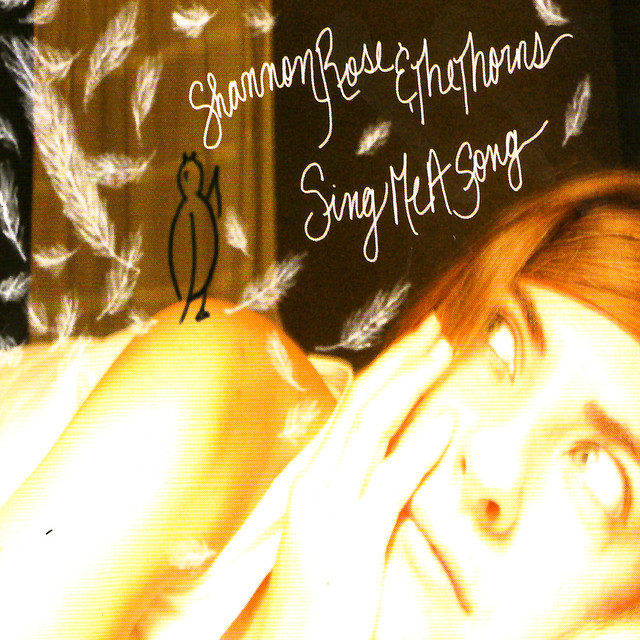 Shannon Rose & The Thorns
Sing Me A Song